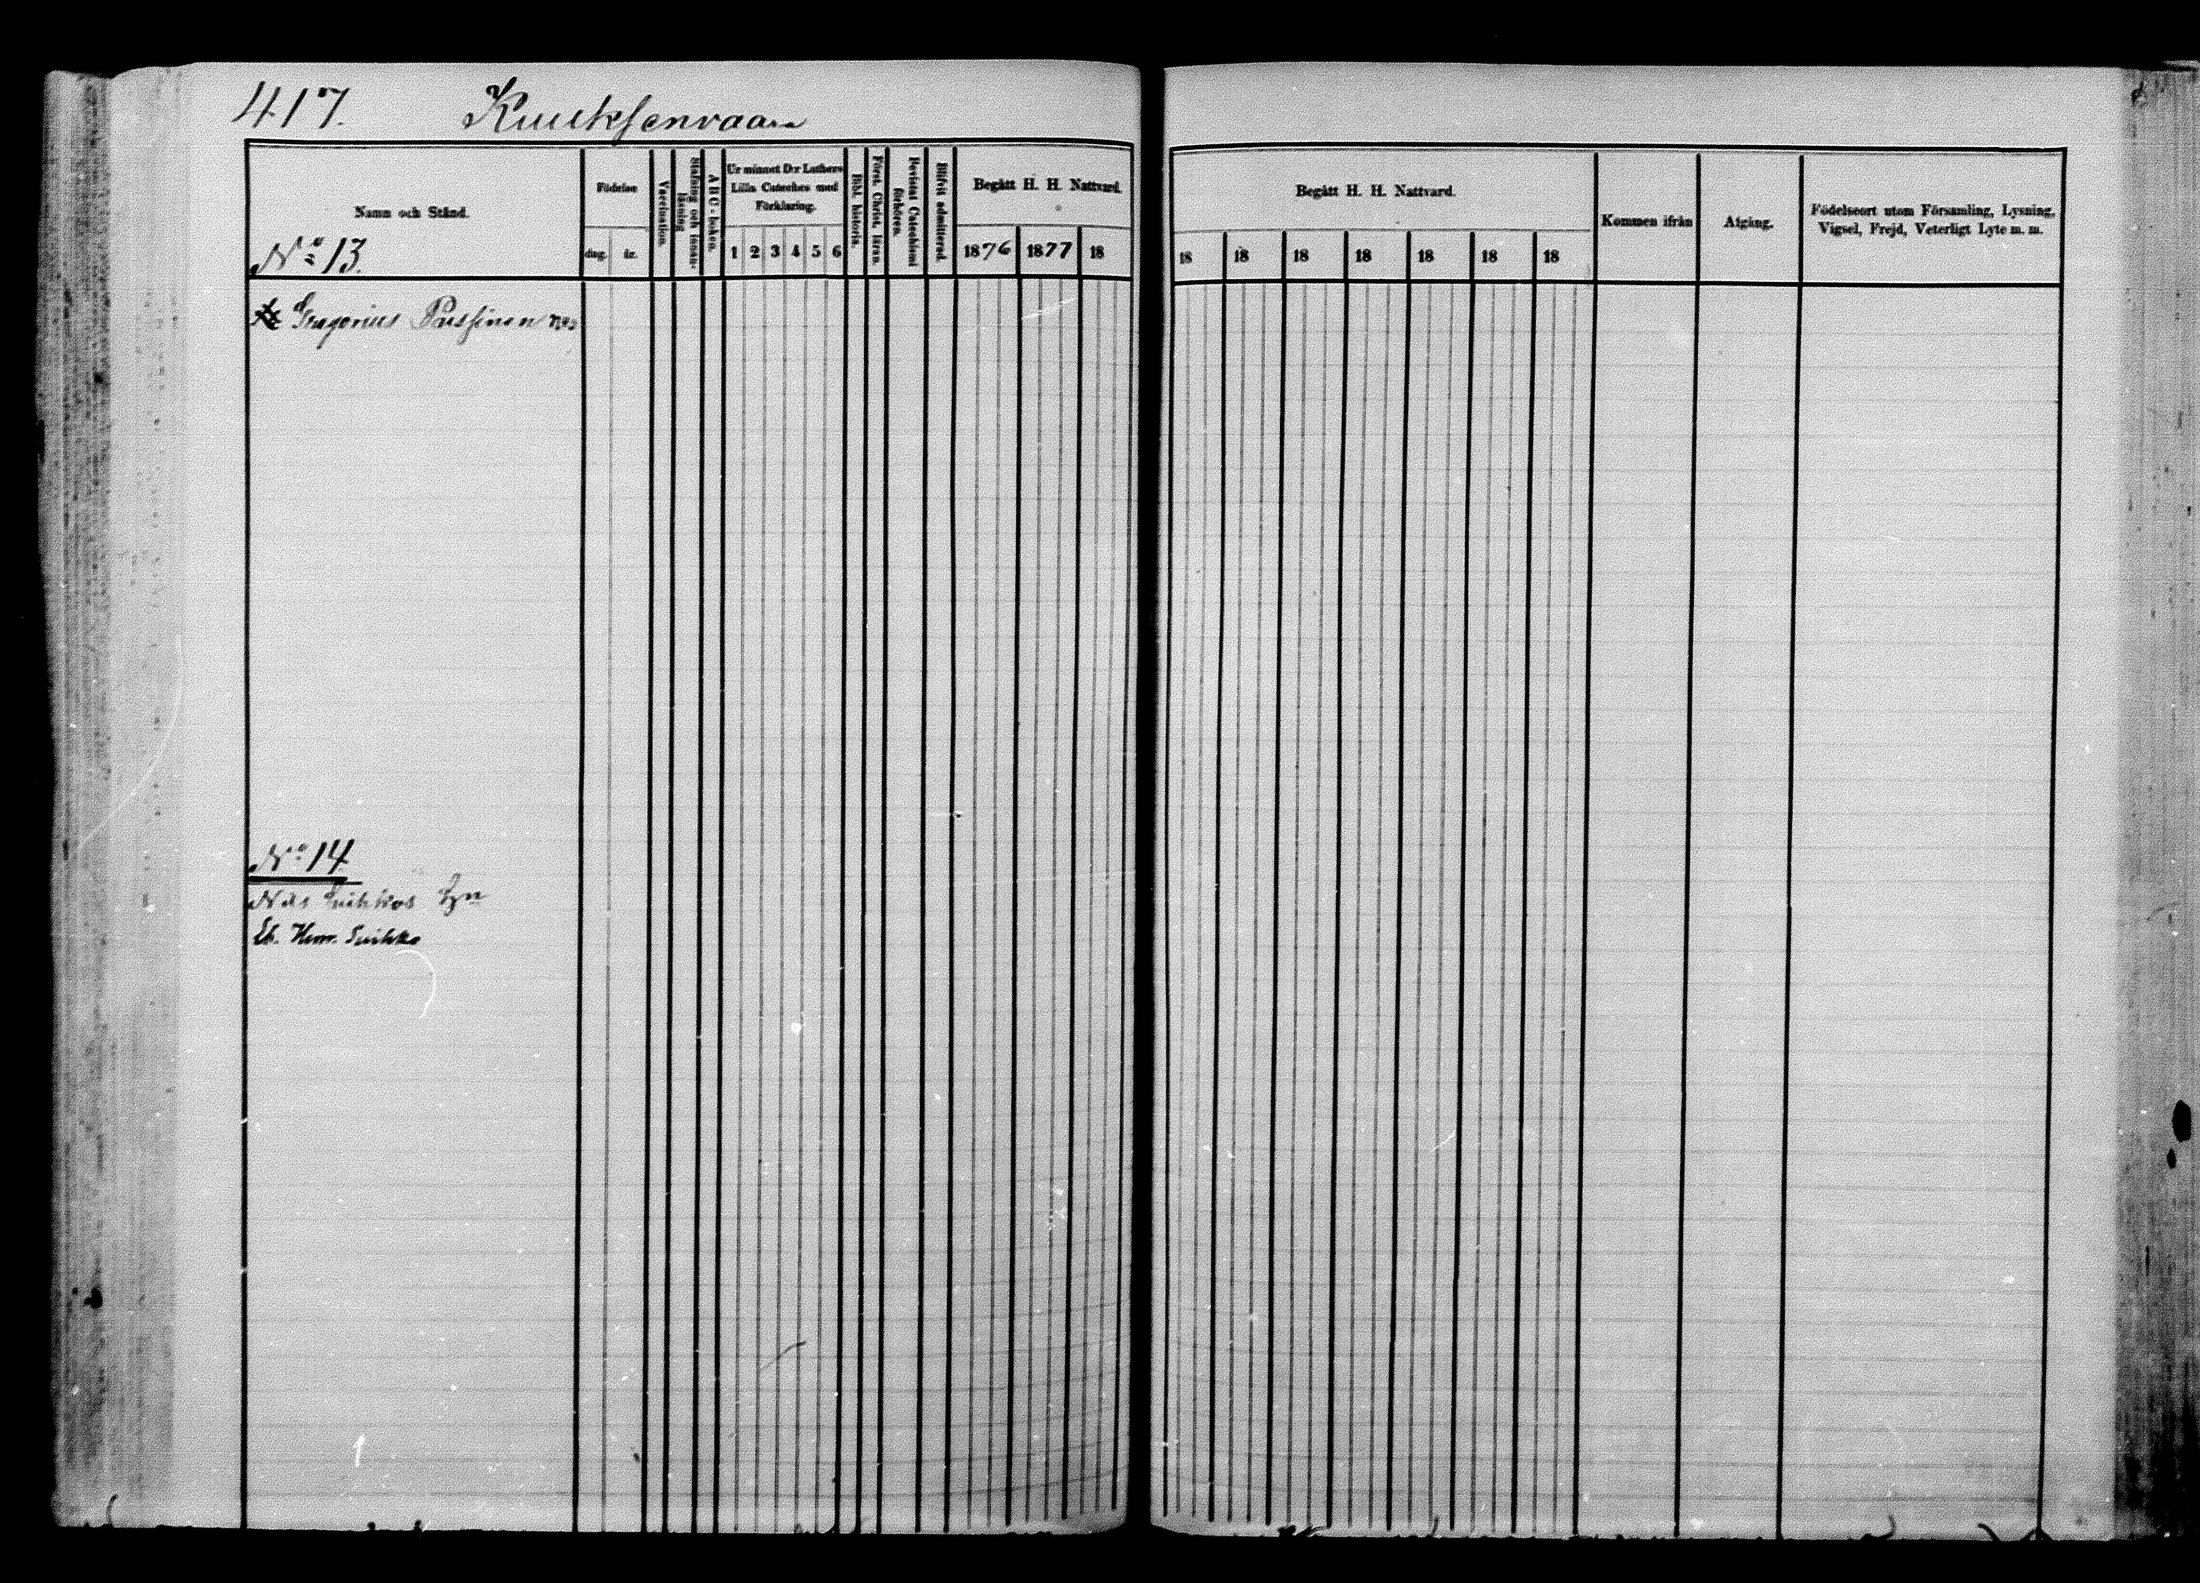 417. Kuuksenvaara
Namn och Stånd.
Födelse
dag. år.
Vaccination.
Stafning och innan-
läsning
A B C-boken.
Ur minnet D:r Luthers
Lilla Cateches med
Förklaring.
1 2 3 4 5 6
Bibl. historia.
Först. Christ. läran.
Bevistat Catechismi
förhören.
Blifvit admitterad.
Begått H. H. Nattvard.
1876 1877 18
Begått H. H. Nattvard.
18 18 18 18 18 18 18
Kommen ifrån
Afgång.
Födelseort utom Församling, Lysning,
Vigsel, Frejd, Veterligt Lyte m. m.
No 13.
Gregorius Pussinen
No 14
Nils
Henr. Suihko